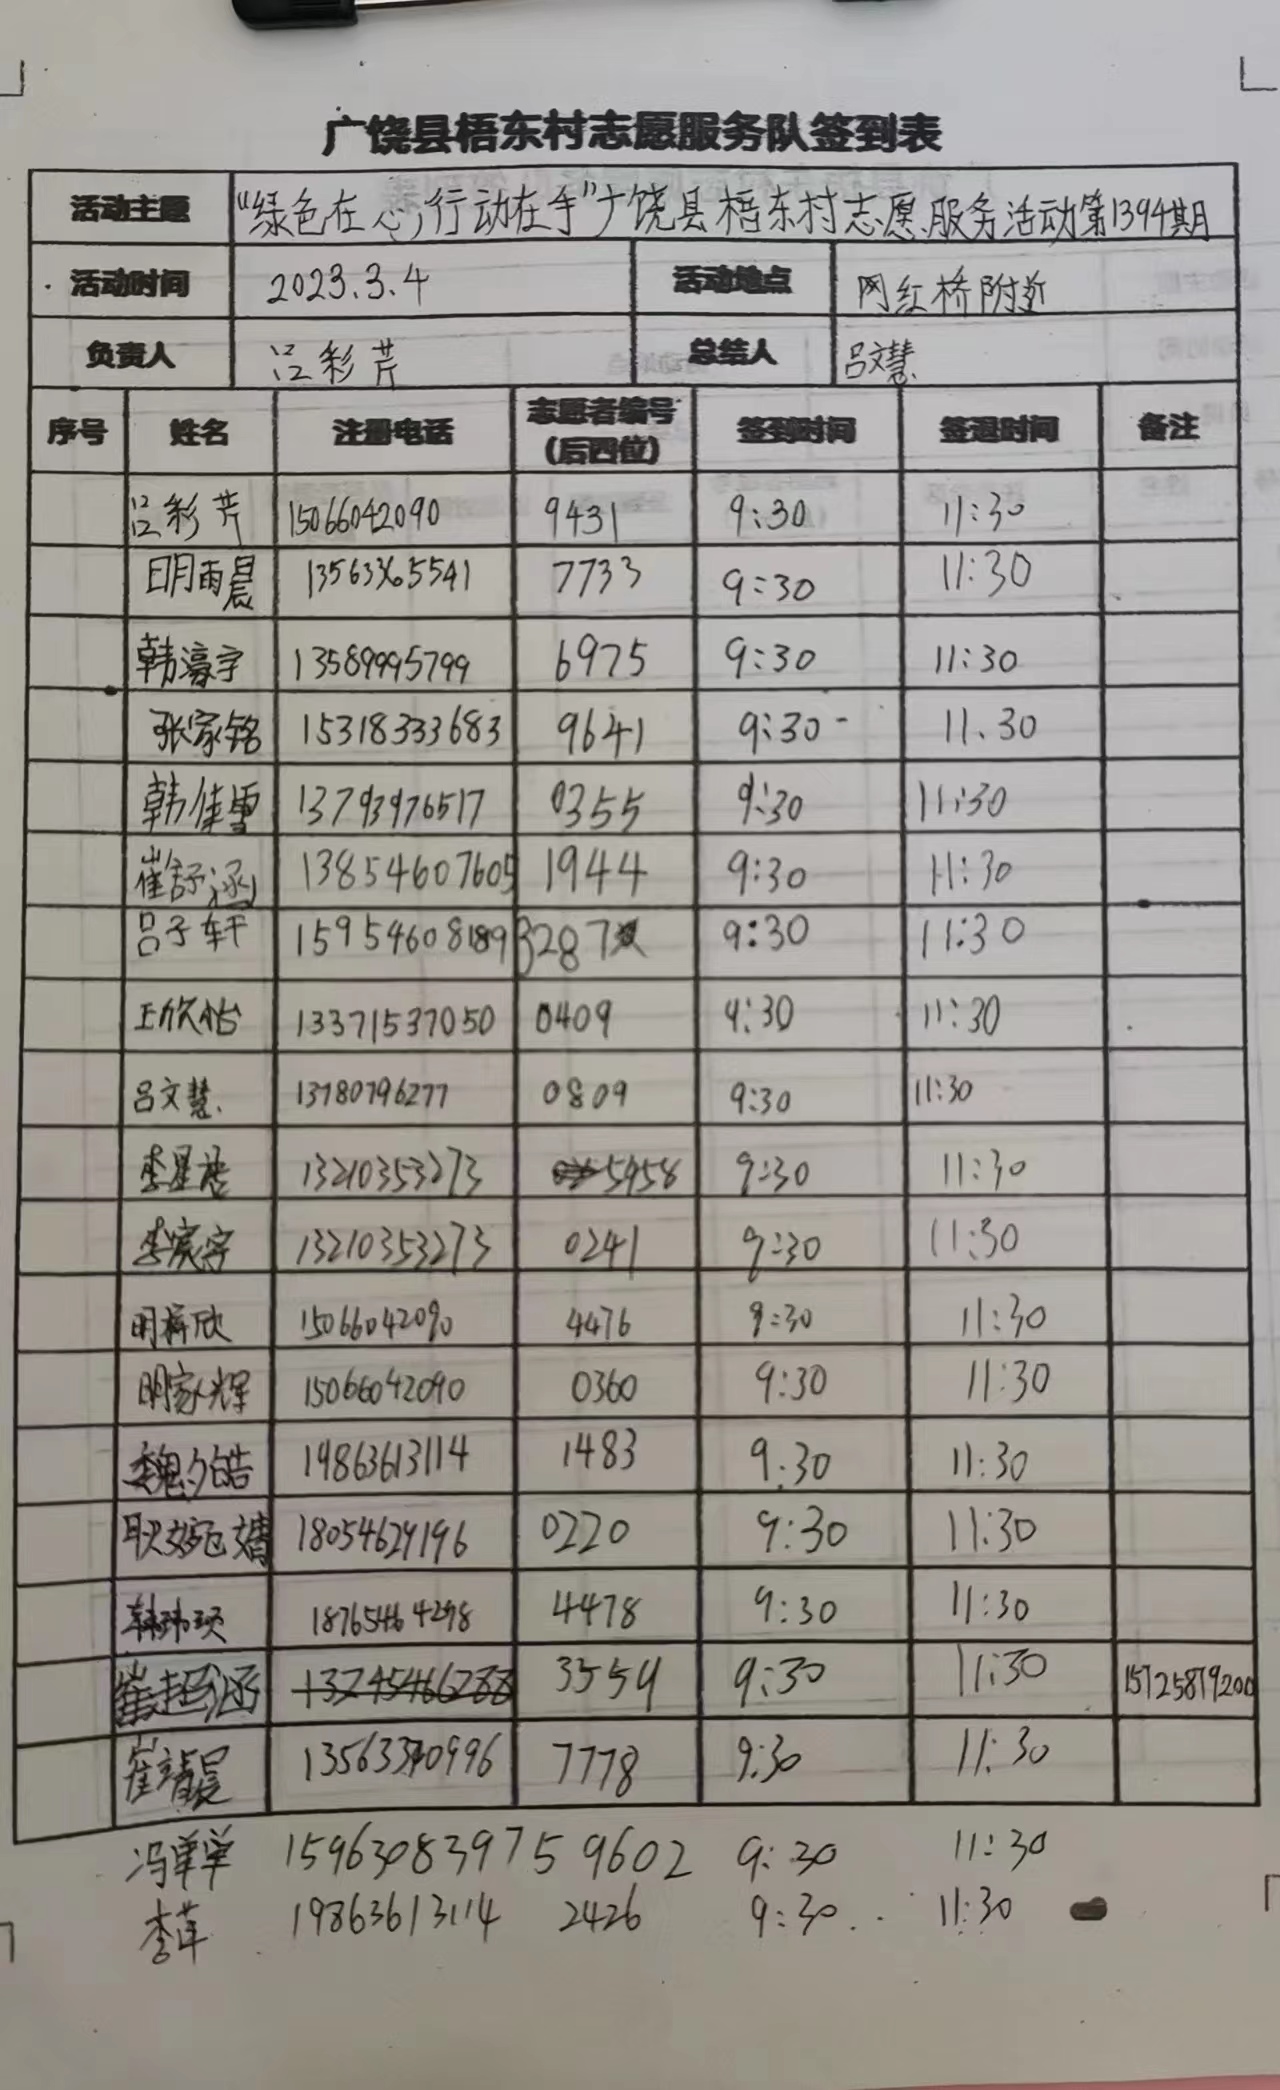 广饶县梧东村志愿服务队签到表
活动主题 “绿色在心,行动在手”广饶县梧东村志愿服务活动第1394期
活动时间 2023.3.4 活动地点 网红桥附近
负责人 吕彩芹 总结人 吕文慧
序号 姓名 注册电话 志愿者编号(后四位) 签到时间 签退时间 备注
吕彩芹 15066042090 9431 9:30 11:30
明雨晨 13563365541 7733 9:30 11:30
韩濠宇 13589995799 6975 9:30 11:30
张家铭 15318333683 9641 9:30 11.30
韩佳雪 13793976517 0355 9:30 11:30
崔舒涵 13854607605 1944 9:30 11:30
吕子轩 15954608189 3287 9:30 11:30
王欣怡 13371537050 0409 9:30 11:30
吕文慧 13780796277 0809 9:30 11:30
李星 13210353273 5958 9:30 11:30
李宸宇 13210353273 0241 9:30 11:30
明梓欣 15066042090 4476 9:30 11:30
明家辉 15066042090 0360 9:30 11:30
魏夕皓 19863613114 1483 9:30 11:30
耿婉婧 18054629196 0220 9:30 11:30
韩玮 18765464298 4478 9:30 11:30
崔超涵 13245466288 3559 9:30 11:30 15725879200
崔靖晨 1356330996 7778 9:30 11:30
冯单单 15963083975 9602 9:30 11:30
李萍 19863613114 2426 9:30 11:30